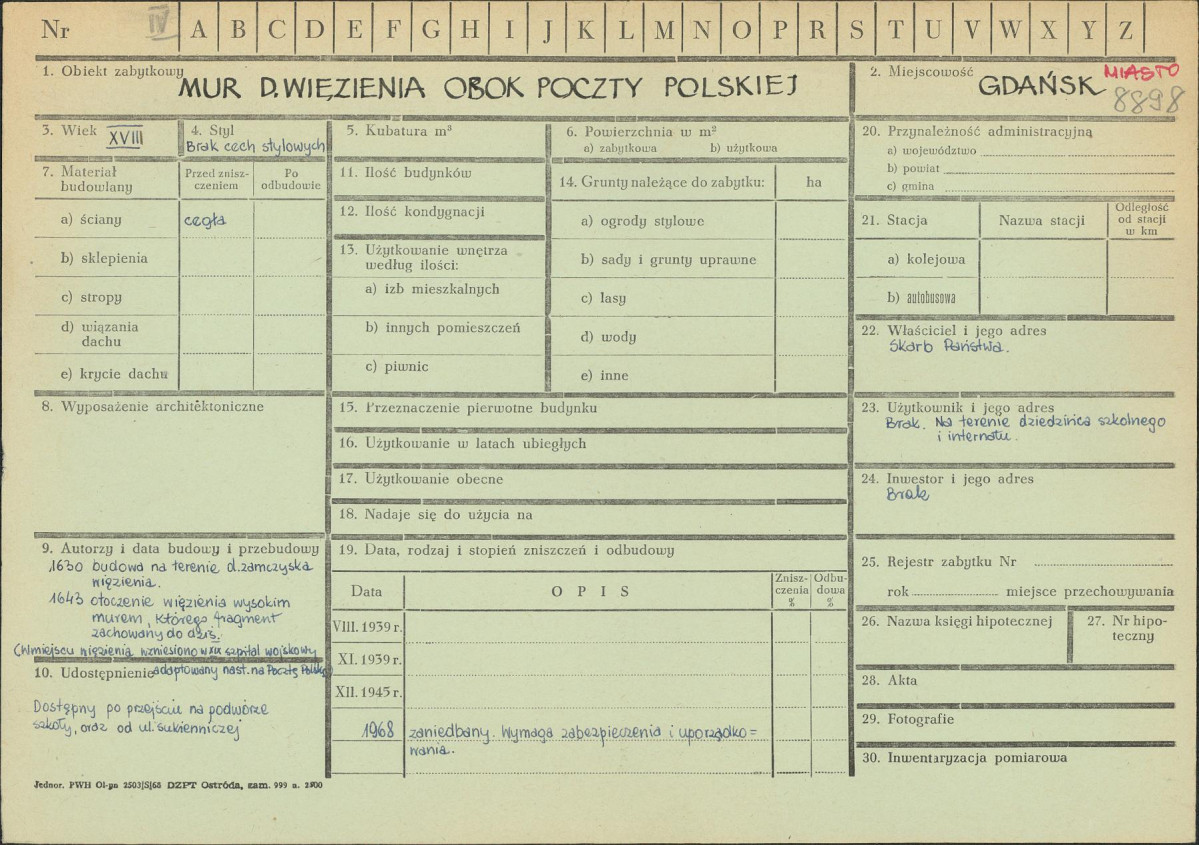 Nr IV A B C D E F G H I J K L M N O P R S T U V W X Y Z
1. Obiekt zabytkowy
MUR D. WIĘZIENIA OBOK POCZTY POLSKIEJ
2. Miejscowość
GDAŃSK MIASTO
8898
3. Wiek XVIII
4. Styl
Brak cech stylowych
5. Kubatura m³
6. Powierzchnia w m²
a) zabytkowa b) użytkowa
7. Materiał budowlany
Przed znisz-
czeniem
Po
odbudowie
a) ściany cegła
b) sklepienia
c) stropy
d) wiązania
dachu
e) krycie dachu
8. Wyposażenie architektoniczne
9. Autorzy i data budowy i przebudowy
1630 budowa na terenie d. zamczyska
więzienia.
1643 otoczenie więzienia wysokim
murem, którego fragment
zachowany do dziś.
(W miejscu więzienia wzniesiono w XIX szpital wojskowy
adaptowany nast. na Pocztę Polską)
10. Udostępnienie
Dostępny po przejściu na podwórze
szkoły, oraz od ul. Sukienniczej
11. Ilość budynków
12. Ilość kondygnacji
13. Użytkowanie wnętrza
według ilości:
a) izb mieszkalnych
b) innych pomieszczeń
c) piwnic
14. Grunty należące do zabytku: ha
a) ogrody stylowe
b) sady i grunty uprawne
c) lasy
d) wody
e) inne
15. Przeznaczenie pierwotne budynku
16. Użytkowanie w latach ubiegłych
17. Użytkowanie obecne
18. Nadaje się do użycia na
19. Data, rodzaj i stopień zniszczeń i odbudowy
Data OPIS
Znisz-
czenia
%
Odbu-
dowa
%
VIII. 1939 r.
XI. 1939 r.
XII. 1945 r.
1968 zaniedbany. Wymaga zabezpieczenia i uporządko=
wania.
20. Przynależność administracyjną
a) województwo
b) powiat
c) gmina
21. Stacja Nazwa stacji
Odległość
od stacji
w km
a) kolejowa
b) autobusowa
22. Właściciel i jego adres
Skarb Państwa.
23. Użytkownik i jego adres
Brak. Na terenie dziedzińca szkolnego
i internatu.
24. Inwestor i jego adres
Brak
25. Rejestr zabytku Nr
rok miejsce przechowywania
26. Nazwa księgi hipotecznej
27. Nr hipo-
teczny
28. Akta
29. Fotografie
30. Inwentaryzacja pomiarowa
Jednor. PWH Ol-pn 2503|S|68 DZPT Ostróda, zam. 999 n. 2500